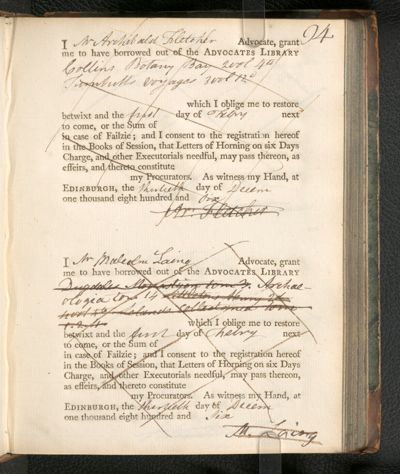 24
I Mr Archibald Fletcher Advocate, grant
me to have borrowed out of the ADVOCATES LIBRARY
Collins Botany Bay 2 vol 4to
Turnbulls voyages vol 12o
which I oblige me to restore
betwixt and the first day of Febry next
to come, or the Sum of
in case of Failzie; and I consent to the registration hereof
in the Books of Session, that Letters of Horning on six Days
Charge, and other Executorials needful, may pass thereon, as
effeirs, and thereto constitute
my Procurators. As witness my Hand, at
EDINBURGH, the thirtieth day of Decem
one thousand eight hundred and
Ar. Fletcher
I Mr Malcolm Laing Advocate, grant
me to have borrowed out of the ADVOCATES LIBRARY
Dugdales Monasticon tom 3. Archae-
ologia tom 14 Henry
Lelands Collectanea tom
which I oblige me to restore
betwixt and the first day of Febry next
to come, or the Sum of
in case of Failzie; and I consent to the registration hereof
in the Books of Session, that Letters of Horning on six Days
Charge, and other Executorials needful, may pass thereon,
as effeirs, and thereto constitute
my Procurators. As witness my Hand, at
EDINBURGH, the thirtieth day of Decem
one thousand eight hundred and Six
M. Laing